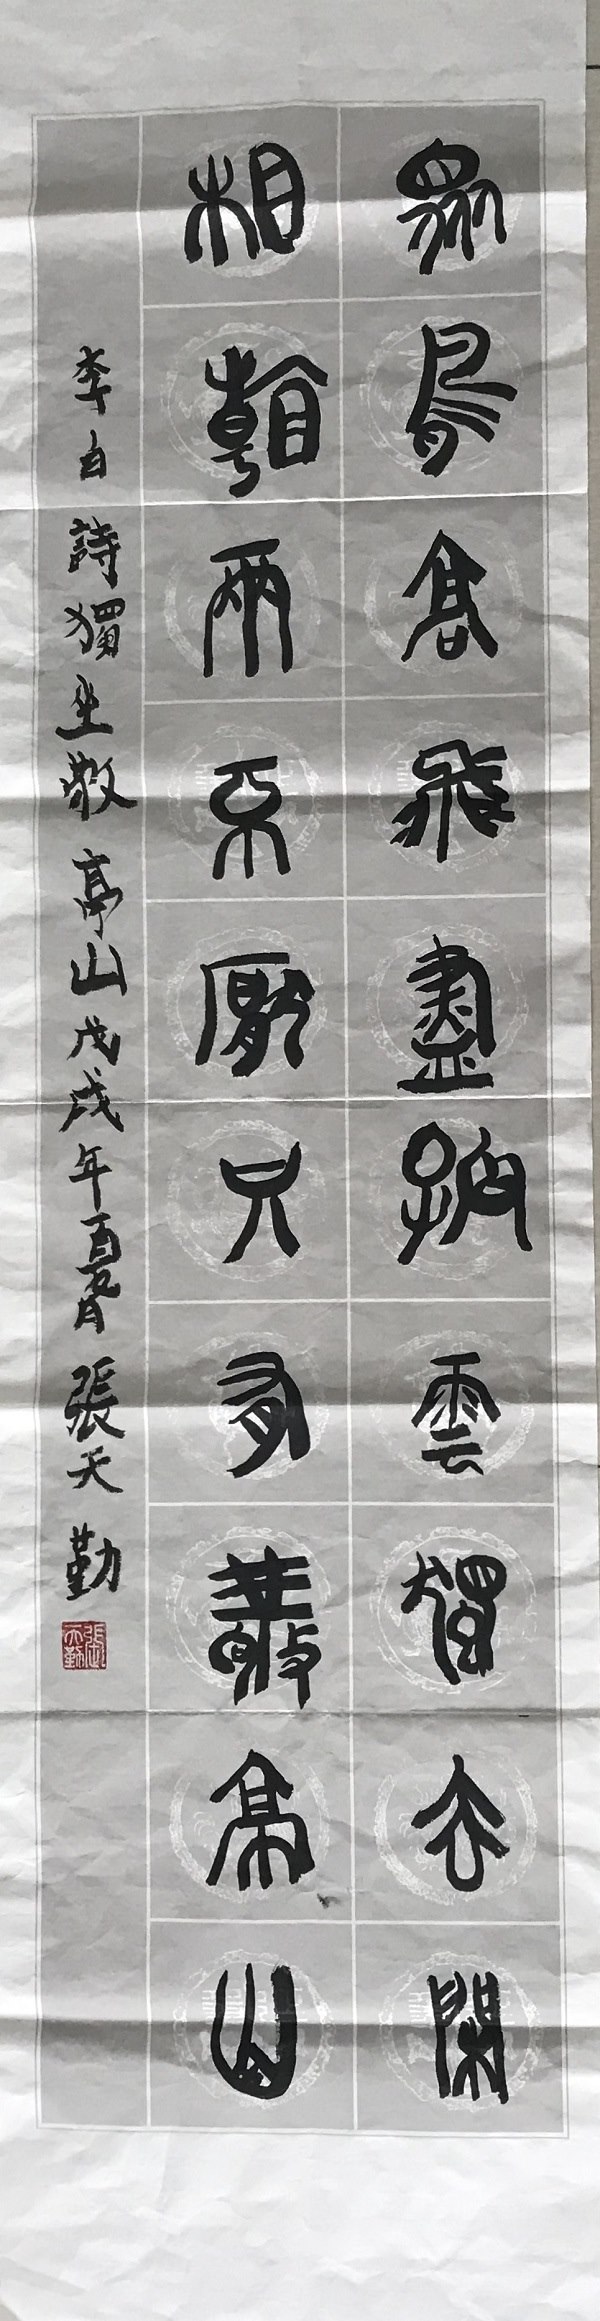 眾鳥高飛盡孤雲獨去閑
相看兩不厭只有敬亭山
李白詩獨坐敬亭山戊戌年 張天勤
張天勤